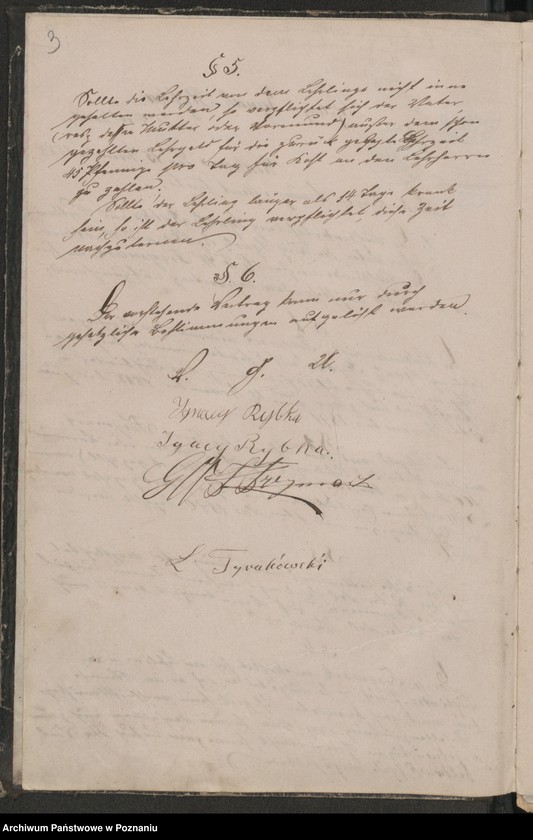 3
§ 5.
Sollte die Lehrzeit von dem Lehrlinge nicht inne
gehalten werden, so verpflichtet sich der Vater,
(resp. dessen Mutter oder Vormund) außer dem schon
gezahlten Lehrgeld für die zurück gelegte Lehrzeit
45 Pfennige pro Tag für Kost an den Lehrherren
zu zahlen.
Sollte der Lehrling länger als 14 Tage krank
sein, so ist der Lehrling verpflichtet, diese Zeit
nachzulernen.
§. 6.
Der vorstehende Vertrag kann nur durch
gesetzliche Bestimmungen aufgelöst werden.
Ignacy Rybka
Ignacy Rybka.
L Tyrakówski
Archiwum Państwowe w Poznaniu